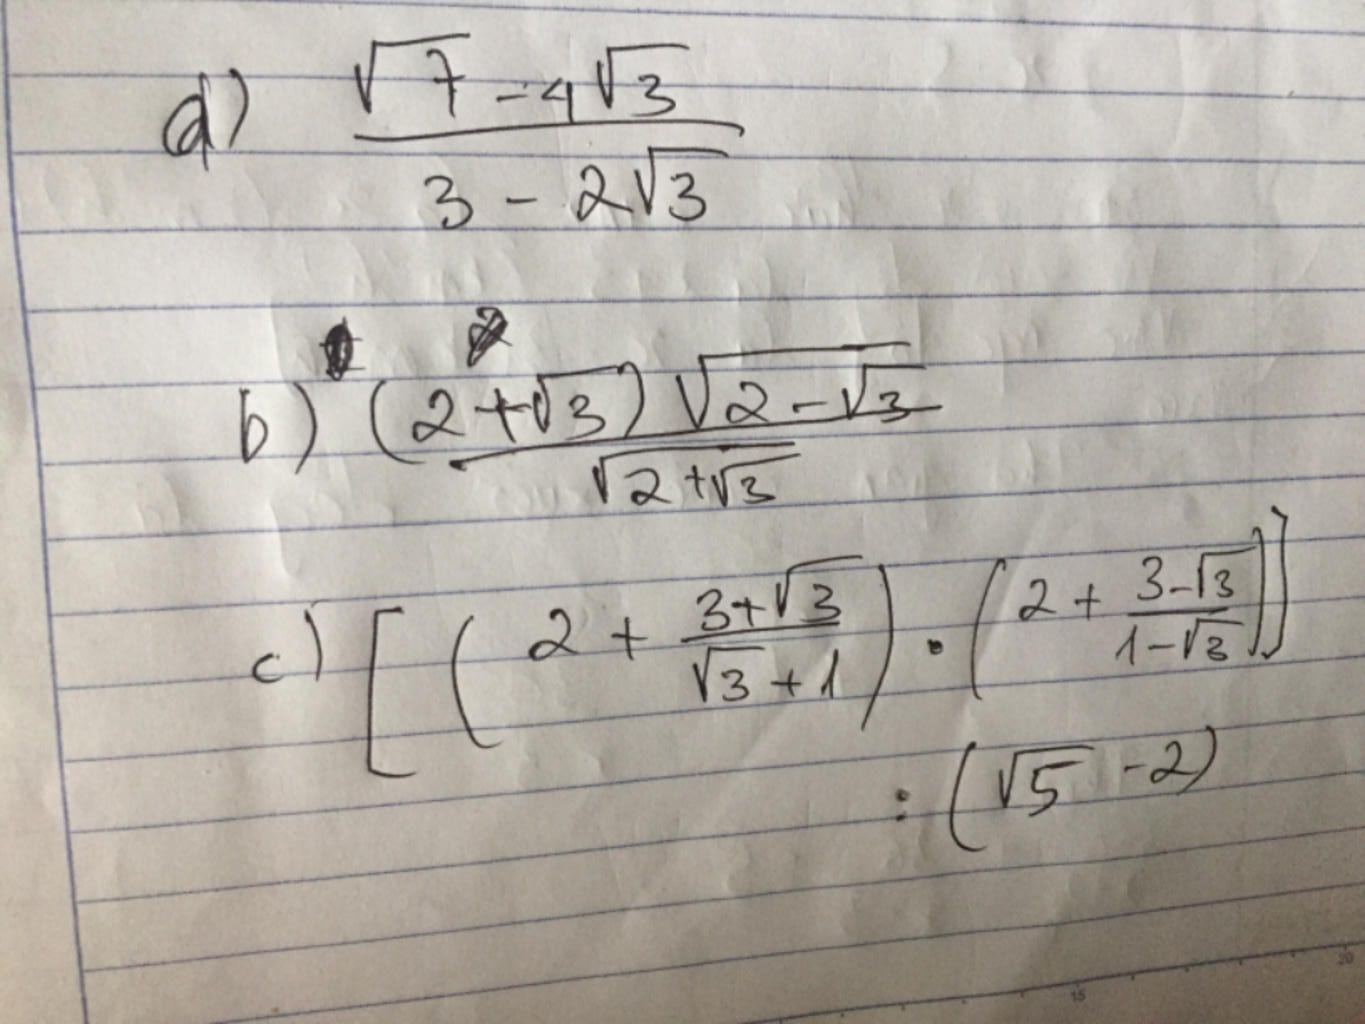 d) (√7 - 4√3)/(3 - 2√3)
b) ((2 + √3) √(2 - √3))/√(2 + √3)
c) [(2 + (3 + √3)/(√3 + 1)) · (2 + (3 - √3)/(1 - √3))]
: (√5 - 2)
15
20